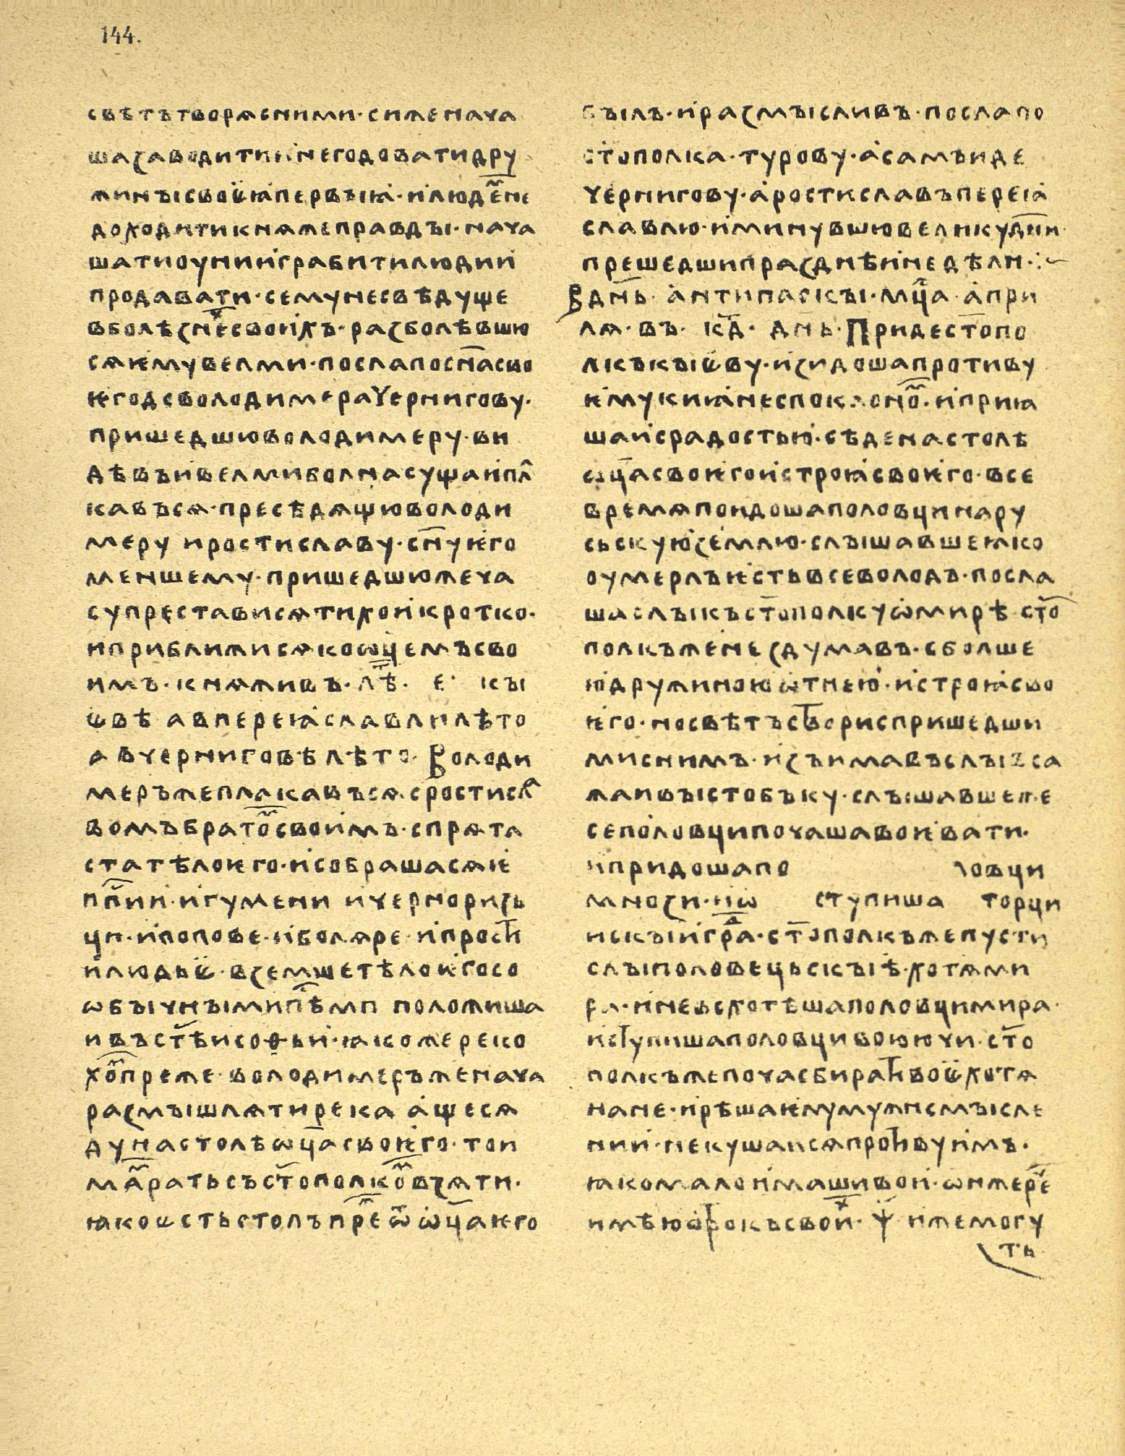 144.
свѣтътворѧсними· сиже нача
шаꙁаводитиинегодоватидру
жинысвоеꙗпервыꙗ· илюдемне
доходитикнѧжеправды· нача
шатиоунииграбитилюдии
продавати· семуневѣдуще
вболѣꙁнехсвоихъ· раꙁболѣвшю
сѧѥмувелми· посласпосн҃асво
ѥгодоволодимераЧернигову·
пришедшюволодимеру· ви
дѣвъивелмиболнасущаипла
кавъсѧ· пресѣдѧщюволоди
меру иростиславу· сн҃уѥго
меншему· пришедшюжеча
супрестависѧтихоикротко·
иприближисѧкоѡц҃емъсво
имъ· кнѧживъ· лѣт҃· е҃· кы
евѣ авпереꙗславлилѣто
авчерниговѣлѣто· Володи
меръжеплакавъсѧсростисла
вомъбратомсвоимъ· спрѧта
статѣлоѥго· исобрашасѧѥ
пп҃ии· игумени ичернориꙁь
ци· ипопове· иболѧре· ипрости
илюдье· вꙁемшетѣлоѥгосо
ѡбычнымипѣми положиша
ивъст҃ѣисофьи· ꙗкожереко
хомпреже· володимеръженача
раꙁмышлѧтирека ащесѧ
дунастолѣѡц҃асвоѥго· тои
маратьсъст҃ополкомвꙁѧти·
ꙗкоестьстолъпреѿѡц҃аѥго
былъ· ираꙁмысливъ· послапо
стополка· турову· асамъиде
чернигову· аростиславъпереꙗ
славлю· иминувшювеликудн҃и
прешедшипраꙁднѣинедѣли·
Вдн҃ь· антипаскы· мц҃а· апри
лѧ· въ· кд҃· дн҃ь· Придест҃опо
лкъкыеву· иꙁидошапротиву
ѥмукиꙗнеспоклоном· иприꙗ
шаисрадостью· сѣденастолѣ
ѡц҃асвоѥгоистроꙗсвоѥго· все
времѧпоидошаполовцинару
сьскуюꙁемлю· слышавшеꙗко
оумерлъѥстьвсеволодъ· посла
шаслыкъст҃ополкуѡмирѣ ст҃о
полкъженеꙁдумавъ· сболше
юдружиноюѡтнею· истроꙗсво
ѥго· носвѣтъствориспришедши
мисними· иꙁъимавъслывса
жаивыстобъку· слышавшеже
сеполовципочашавоѥвати·
ипридошапо ловци
мноꙁи· иѡ ступиша торци
искыигра· ст҃ополкъжепусти
слыполовецьскыѣ· хотѧми
ра· иневсхотѣшаполовцимира·
иступишаполовцивоюючи· ст҃о
полкъжепочасбиративоехотѧ
нане· ирѣшаѥмумужисмысле
нии· некушаисѧпротивуимъ·
ꙗкомалоимашивои· ѡнжерече
имѣюѡтрокъсвоихъ· ѱ҃ ижемогу
ть